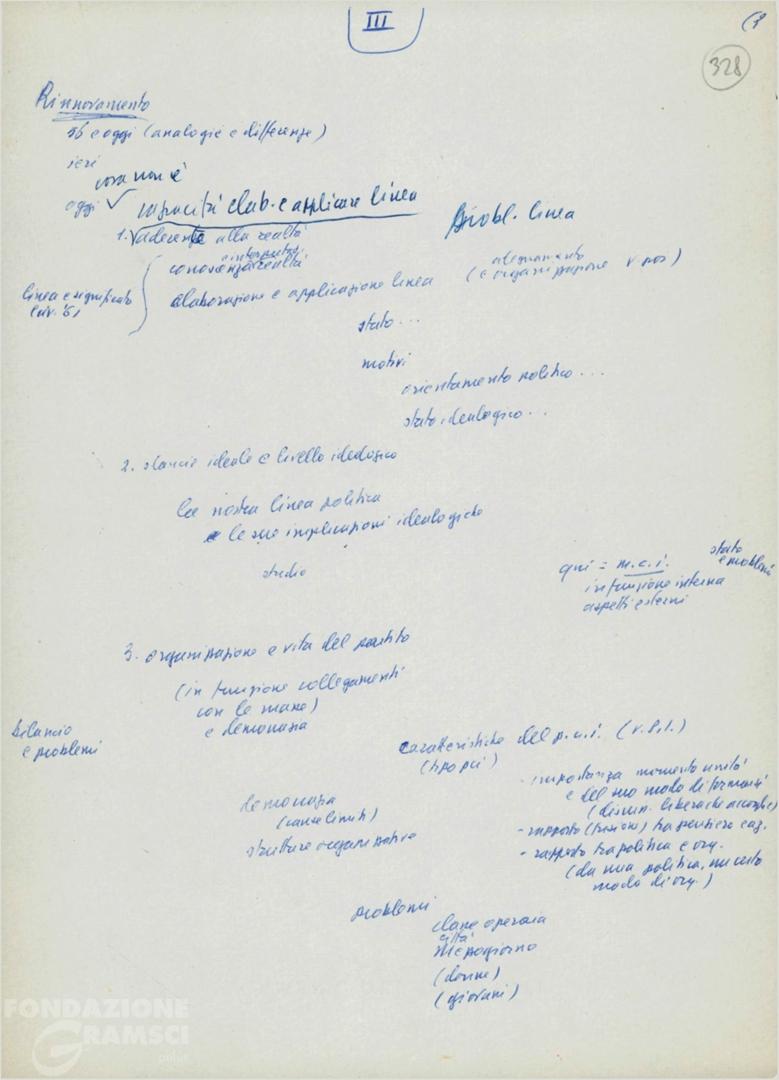 III
328
Rinnovamento
56 e oggi (analogie e differenze)
ieri
cosa non è
oggi
capacità elab. e applicare linea
Probl. linea
1. aderente alla realtà
e interpretaz.
conoscenza realtà
adeguamento
(e organizzazione v. poi)
linea e significato
elaborazione e applicazione linea
stato...
motivi
orientamento politico...
stato ideologico...
2. slancio ideale e livello ideologico
la nostra linea politica
e le sue implicazioni ideologiche
studio
qui = m.c.i.
stato
e problemi
in funzione interna
aspetti esterni
3. organizzazione e vita del partito
(in funzione collegamenti
con le masse)
e democrazia
bilancio
e problemi
caratteristiche del p.c.i. (v. S.I.)
(tipo pci)
- importanza momento unità
e del suo modo di formarsi
- rapporto (fusione) tra pensiero e az.
- rapporto tra politica e org.
(da una politica, un certo
modo di org.)
democrazia
(cause limiti)
strutture organizzative
problemi
classe operaia
città
mezzogiorno
(donne)
(giovani)
FONDAZIONE
GRAMSCI